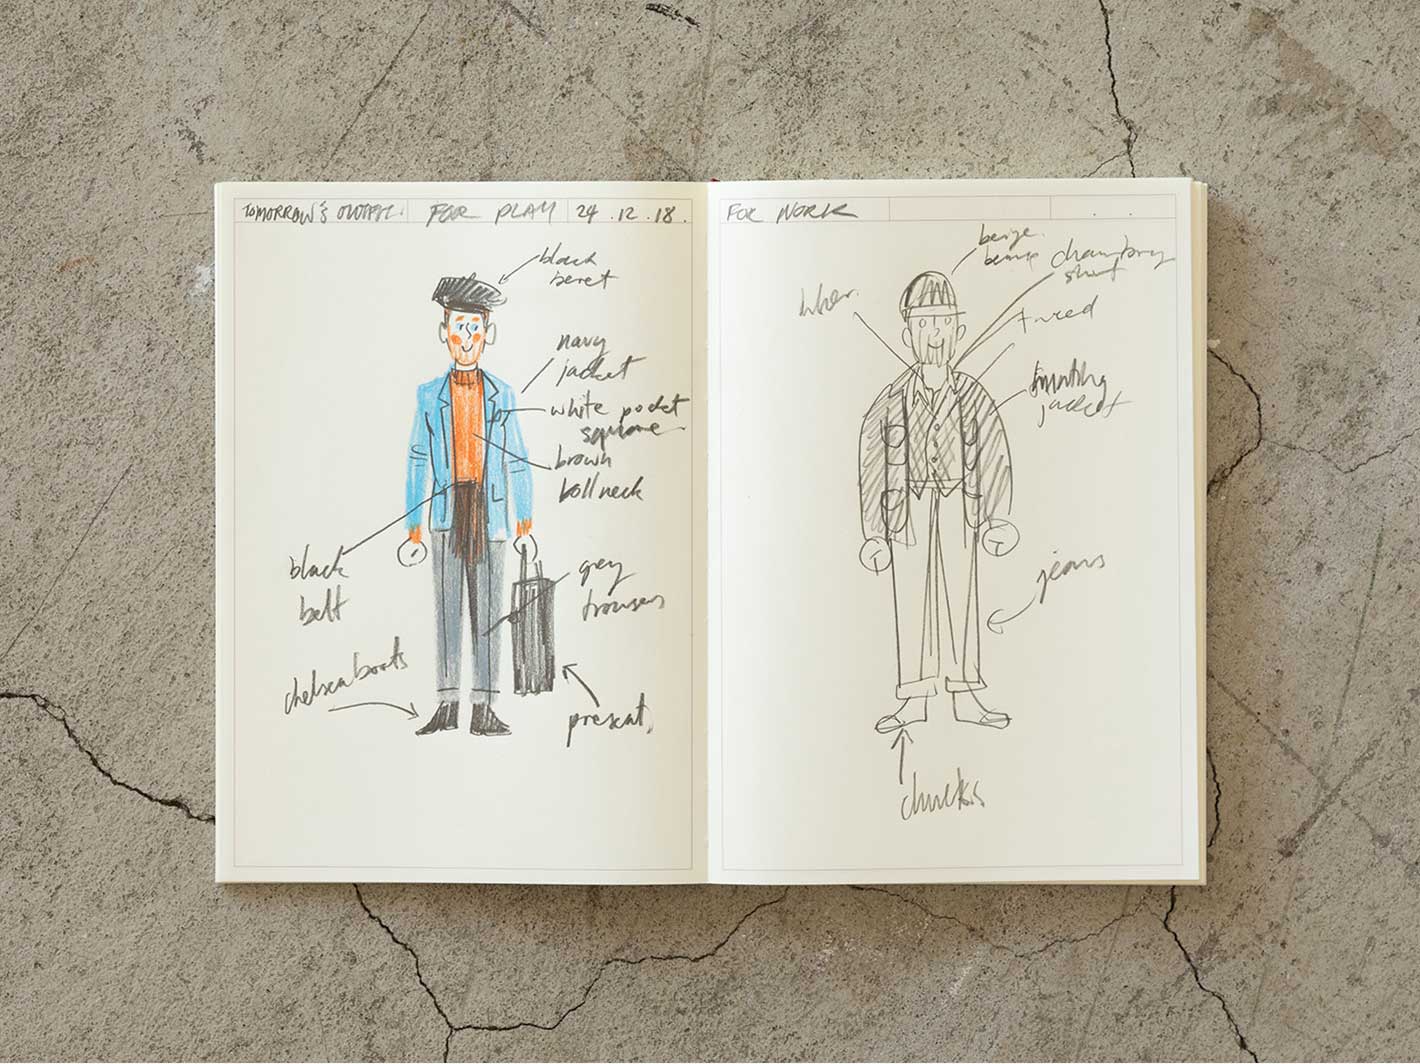 TOMORROW'S OUTFIT.
FOR PLAY
24.12.18.
black
beret
navy
jacket
white pocket
square
brown
rollneck
black
belt
grey
trousers
chelsea boots
present
FOR WORK
beige
chambray
shirt
tweed
jacket
jeans
chucks